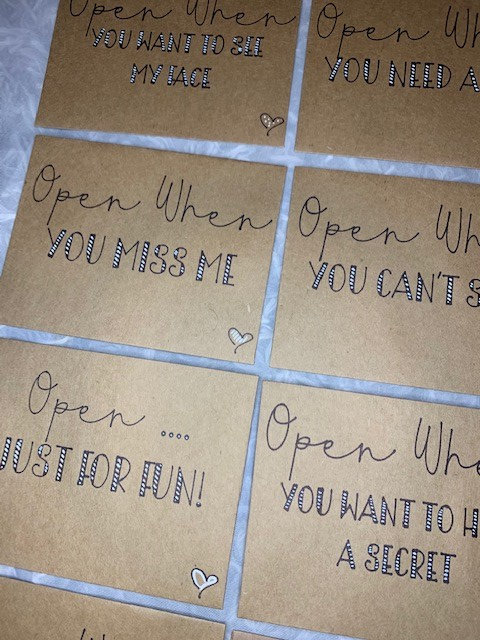 Open When
YOU WANT TO SEE
MY FACE
Open
YOU NEED A
Open When
YOU MISS ME
Open
YOU CAN'T
Open ....
JUST FOR FUN!
Open When
YOU WANT TO
A SECRET